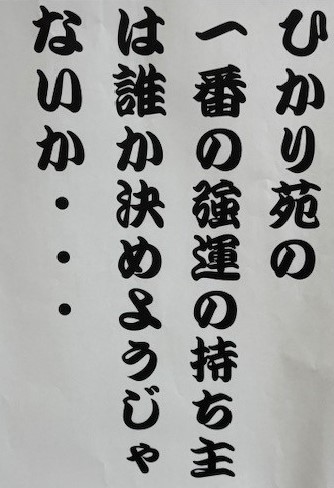 ひかり苑の
一番の強運の持ち主
は誰か決めようじゃ
ないか・・・